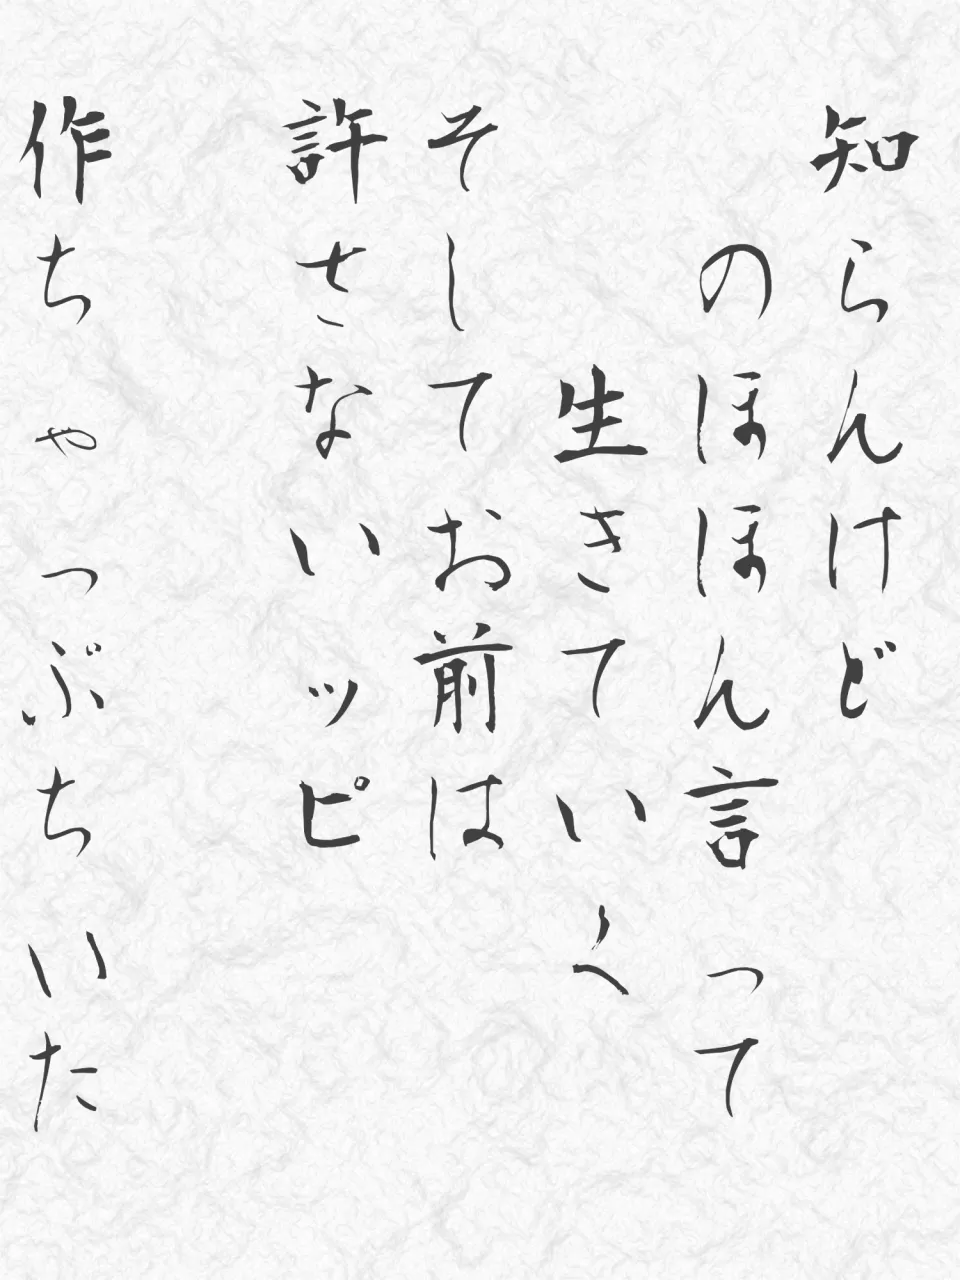 知らんけど
のほほん言って
生きていく
そしてお前は
許さないッピ
作ちゃっぶちいた